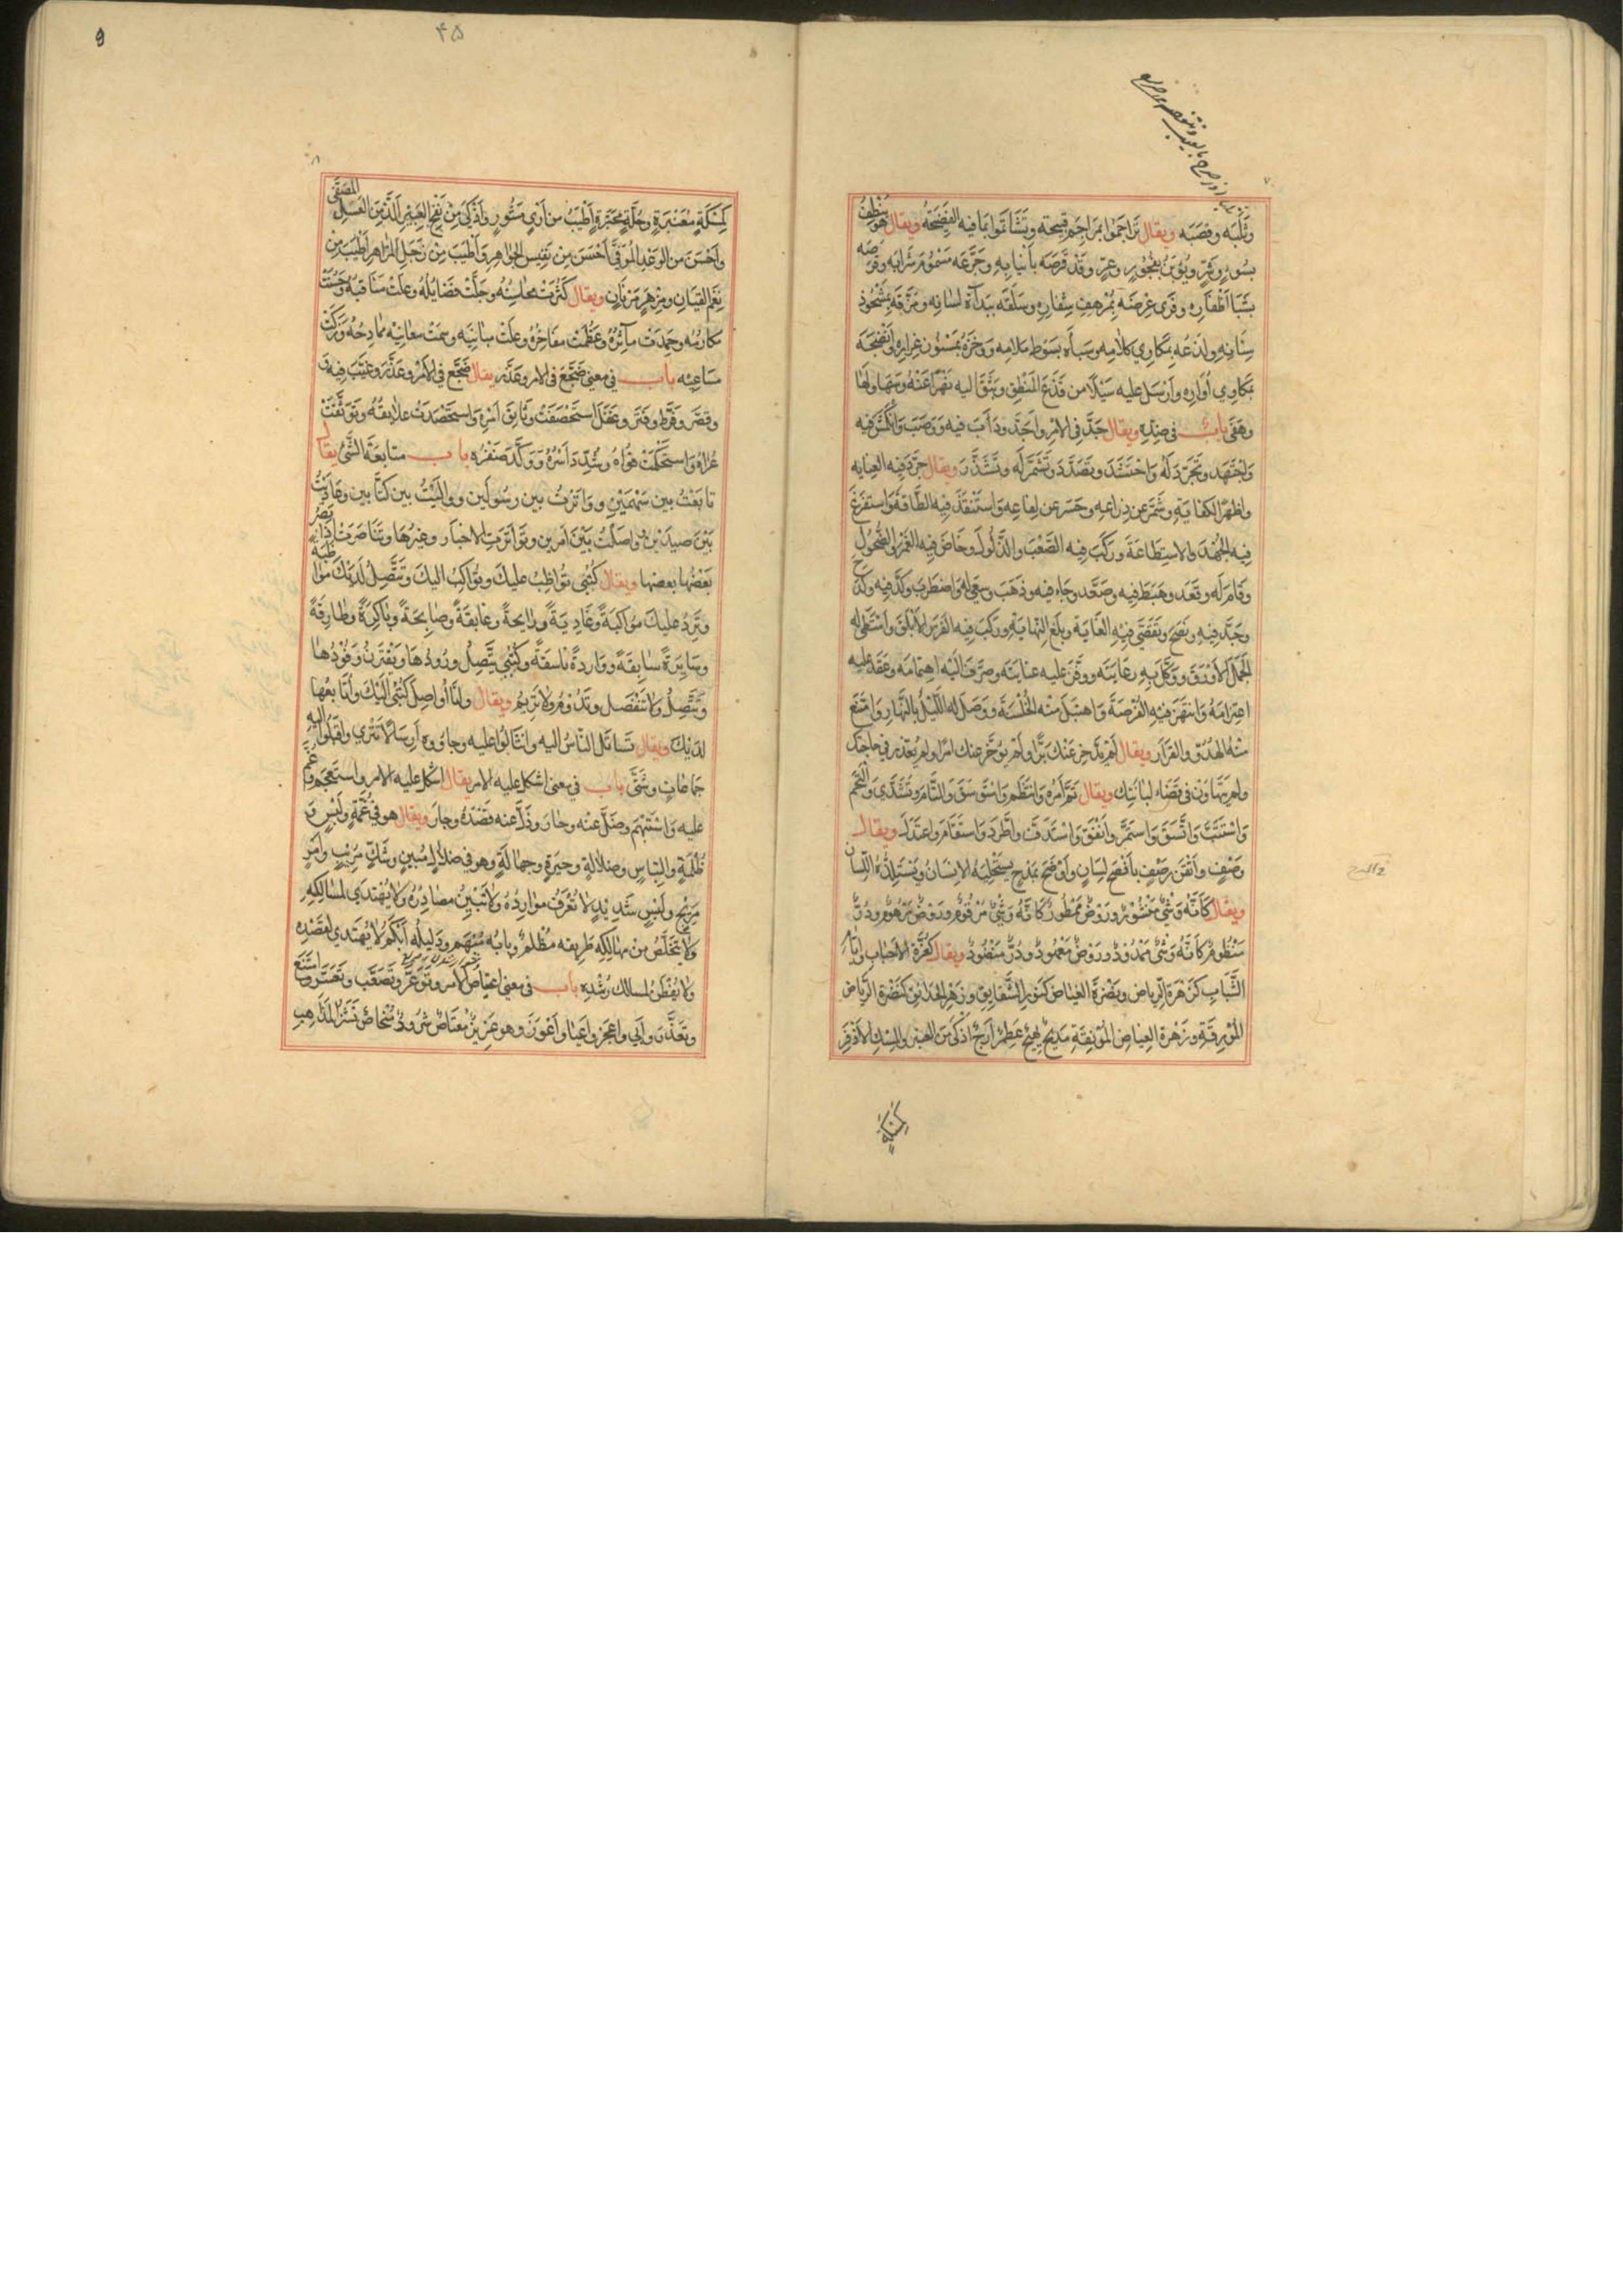 وثلبه وقصبه ويقال تراجموا بمراجم قبيحة وتشاتموا بما فيه الفضيحة ويقال هو ينطف
بسوء وشر ويؤبن بفجور وعر وقد قرصه بأنيابه وجرعه مسموم شرابه وقرضه
بشبا أظفاره وفرى عرضه بمرهف شفاره وسلقه ببذاة لسانه ومزقه بمشحوذ
سنانه ولذعه بمكاوي كلامه وسبأه بسوط ملامه ووخزه بمسنون غراره وأنضجه
بمكاوي أواره وأرسل عليه سيلا من قذع المنطق وبثق اليه نهرا
وهفى باب في ضده ويقال جد في الامر واجد وداب فيه ووصب وانكمش فيه
واجتهد وتجرد له واحتشد وتصدد وتشمر له وتشذر ويقال جرد فيه العنايه
واظهر الكفاية وشمر عن ذراعه وحسر عن لفاعه واستنفد فيه الطاقة واستفرغ
فيه الجهد والاستطاعة وركب فيه الصعب والذلول وخاض فيه الغمر والضحول
وقام له وقعد وهبط فيه وصعد وجاء فيه وذهب وسعى له واضطرب وكد فيه وكدح
وجد فيه ونصح وتقصى فيه الغاية وبلغ النهاية وركب فيه الفرس الابلق وامتطى له
الجمل الاورق ووكل به رعايته ووقف عليه عنايته وصرف اليه اهتمامه وعقد عليه
اعتزامه وانتهز فيه الفرصة واهتبل منه الخلسة ووصل له الليل بالنهار وامتنع
منه الهدو والقرار ويقال لم يدخر عنك برا ولم يؤخر عنك امرا ولم يعذر في حاجتك
ولم يتهاون في قضاء لبانتك ويقال تم أمره وانتظم واستوسق والتام وتسدى والتحم
واستتب واتسق واستمر واتفق واستدف واطرد واستقام واعتدل ويقال
وصف واتقن رصف بافصح لسان واوضح بمدح يستحليه الانسان ويستلذه اللسان
ويقال كانه وشي منشور وروض ممطور كانه وشي مرقوم وروض مرهوم ودر
منظوم كانه وشي ممدود وروض معمود ودر منضود ويقال كغرة الاحباب وايام
الشباب كزهرة الرياض ونضرة الغياض كنور الشقايق وزهر الحدايق كنضرة الرياض
المورقة وزهرة الغياض المونقة مديح بهيج عطر أرج اذكى من العنبر والمسك الاذفر
كمسكة
٤٥
٨
كمسكة معنبرة وحلة محبرة أطيب من أري مشور وأذكى من نفح العبير الذ من العسل المصفى
واحسن من الوعد الموفى أحسن من نفيس الجواهر وأطيب من زجل المزاهر أطيب من
نغم القيان ومزهر مرنان ويقال كثرت محاسنه وجلت فضايله وعلت مناقبه وحسنت
مكارمه وحمدت مآثره وعظمت مفاخره وعلت مبانيه وسمت معانيه مادحه وزكت
مساعيه باب في معنى ضجع في الامر وعذر يقال ضجع في الامر وعذر وغبب فيه
وقصر وفرط وفتر وغفل استحصفت وثائق امره واستحصدت علايقه وتوثقت
عراه واستحكمت قواه وشدد أسره ووكد ضفره باب متابعة الشئ يقال
تابعت بين سهمين وواترت بين رسولين وواليت بين كتابين وعاديت
بين صيدين وواصلت بين أمرين وتواترت الاخبار وغيرها وتناصرت اذا نصر
بعضها بعضها ويقال كتبي تواظب عليك وتواكب اليك وتتصل لديك مواظبة
وترد عليك مواكبة وغادية ورايحة وغابقة وصابحة وباكرة وطارقة
وسايرة سابقة وواردة ناسقة وكتبي يتصل ورودها ويقترن وفودها
وتتصل ولا تنفصل وتدوم ولا تريم ويقال ولا ألوا صل كتبي اليك وأتابعها
لديك ويقال تساتل الناس اليه وانثالوا عليه وجاؤوه أرسالا تترى واقبلوا اليه
جماعات وشتى باب في معنى اشكل عليه الامر يقال اشكل عليه الامر واستعجم وغم
عليه واستبهم وضل عنه وحار وذل عنه قصده وجار ويقال هو في غمة ولبس و
ظلمة والتباس وضلالة وحيرة وجهالة وهو في ضلال مبين وشك مريب وأمر
مريج ولبس شديد لا تعرف موارده ولا تتبين مصادره ولا يهتدي لمسالكه
ولا يتخلص من مهالكه طريقه مظلم وبابه مبهم ودليله أبكم لا يهتدي لقصده
ولا يفطن لمسالك رشده باب في معنى اعتياص الامر وتوعر وتصعب وتعسر وامتنع
وتعذر وأبى واعجز واعيا واعوز وهو عزيز معتاص شرود